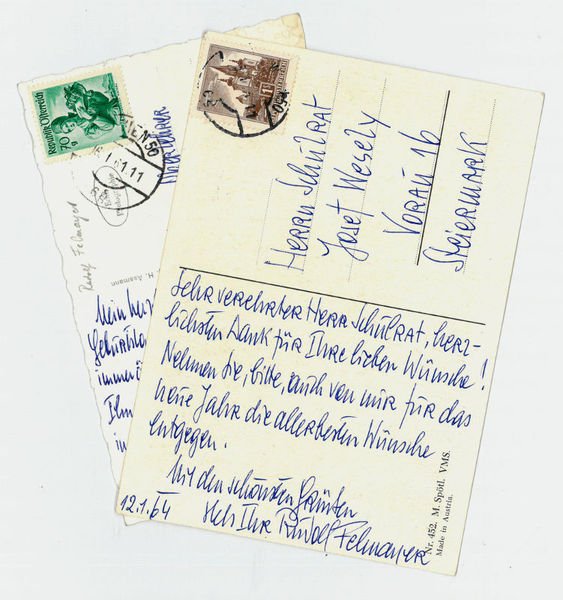 Republik Österreich
70
g
WIEN 56
61.11
Rudolf Felmayer
Echte
H. Assmann
Mein
Geburtst
immer
Ihn
in
Herrn Schulrat
Josef Wesely
Vorau 16
Steiermark
Sehr verehrter Herr Schulrat, herz-
lichsten Dank für Ihre lieben Wünsche!
Nehmen Sie, bitte, auch von mir für das
neue Jahr die allerbesten Wünsche
entgegen.
Mit den schönsten Grüßen
12.1.64 stets Ihr Rudolf Felmayer
Nr. 452. M. Spötl. VMS.
Made in Austria.